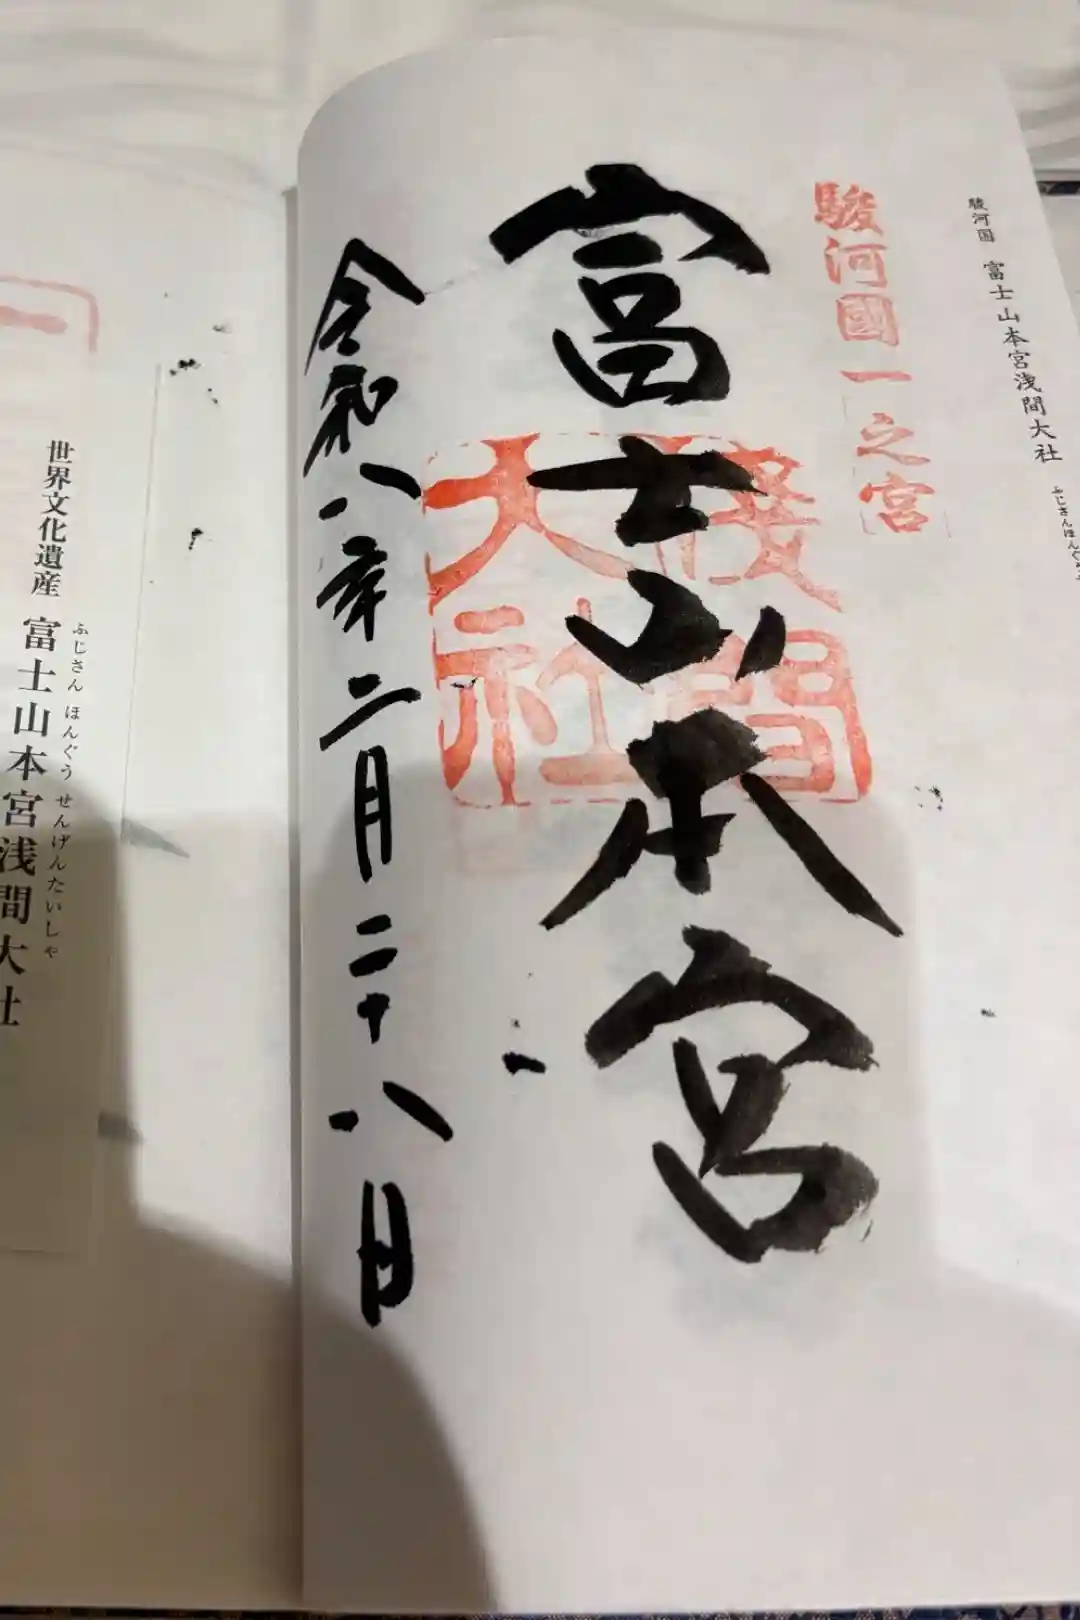 駿河国 富士山本宮浅間大社
ふじさんほんぐ
駿河國一之宮
富士山本宮
淺間大社
令和八年二月二十八日
世界文化遺産 富士山本宮浅間大社
ふじさん ほんぐう せんげんたいしゃ